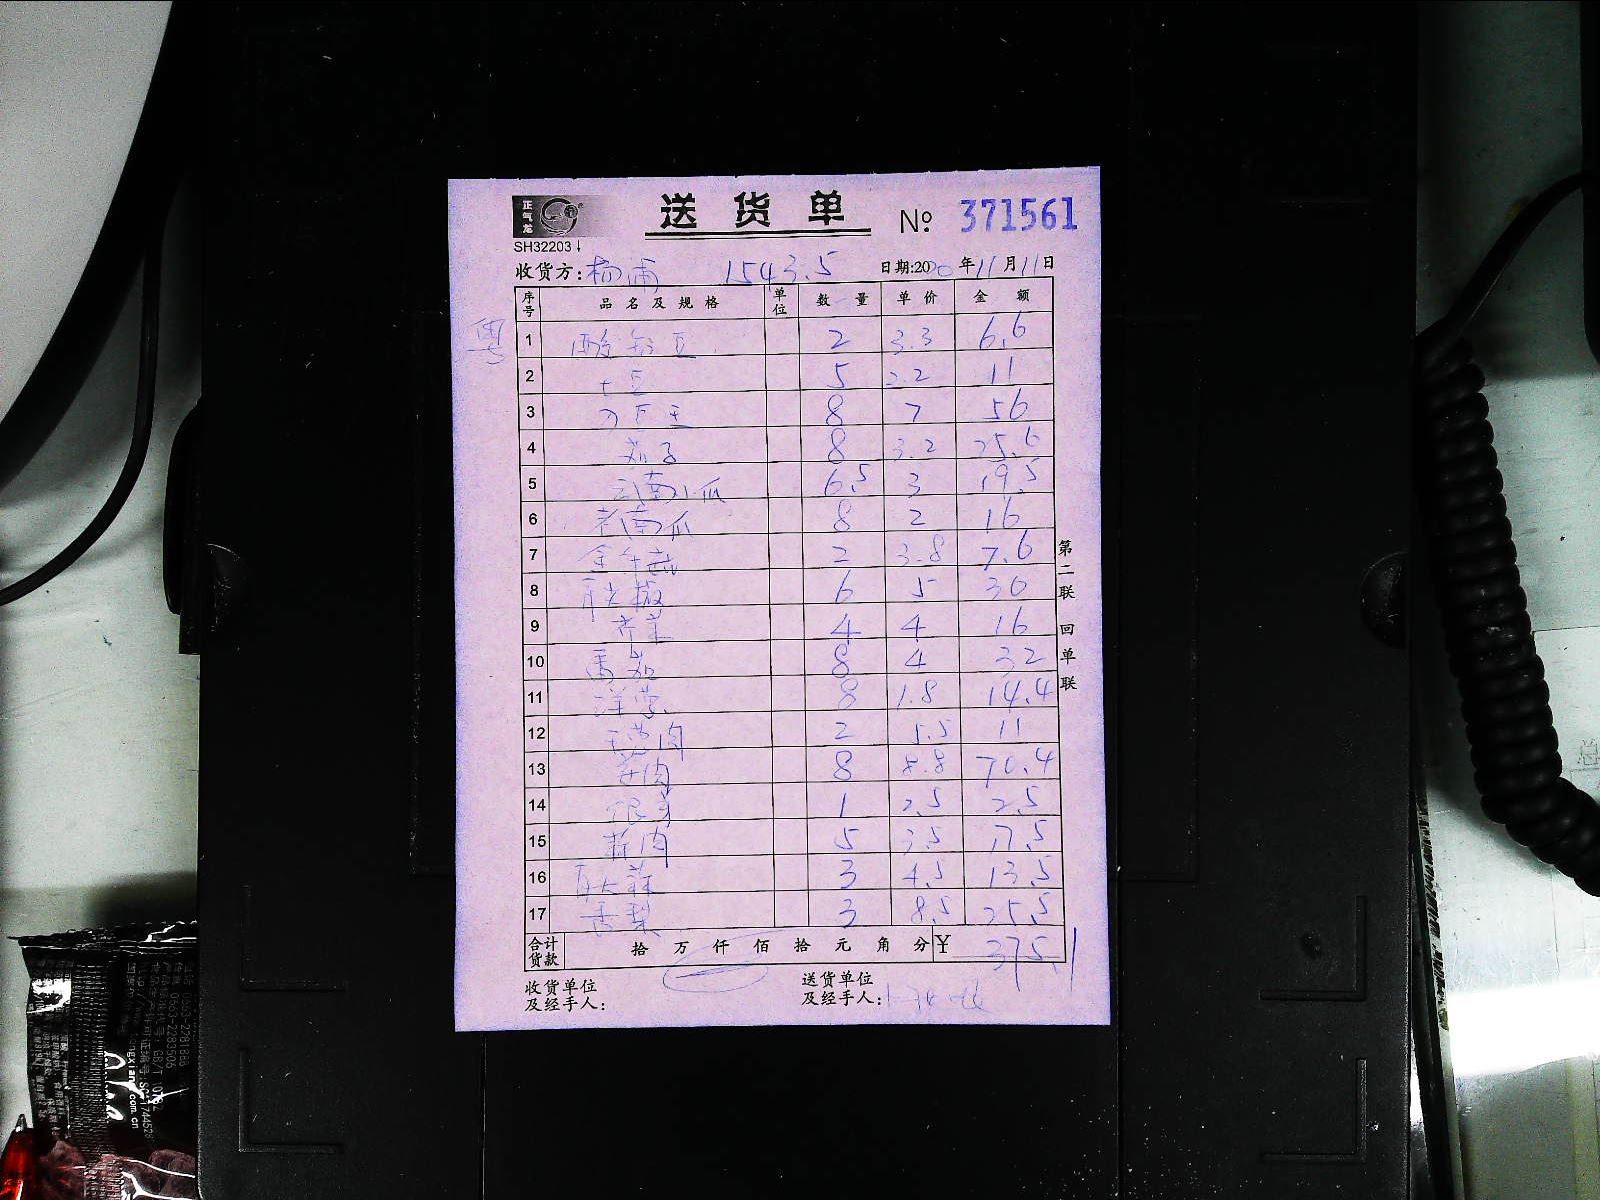 正气龙
送货单 № 371561
SH32203
收货方: 杨浦 1543.5 日期:2020年11月11日
序号 品名及规格 单位 数量 单价 金额
粤
1 2 3.3 6.6
2 土豆 5 2.2 11
3 8 7 56
4 茄子 8 3.2 25.6
5 云南小瓜 6.5 3 19.5
6 老南瓜 8 2 16
7 2 3.8 7.6
8 青尖椒 6 5 30
9 芹菜 4 4 16
10 番茄 8 4 32
11 洋葱 8 1.8 14.4
12 2 5.5 11
13 8 8.8 70.4
14 银芽 1 2.5 2.5
15 蒜肉 5 3.5 17.5
16 青大蒜 3 4.5 13.5
17 香梨 3 8.5 25.5
合计货款 拾 万 仟 佰 拾 元 角 分 ¥ 375.1
收货单位及经手人:
送货单位及经手人:
第二联 回单联